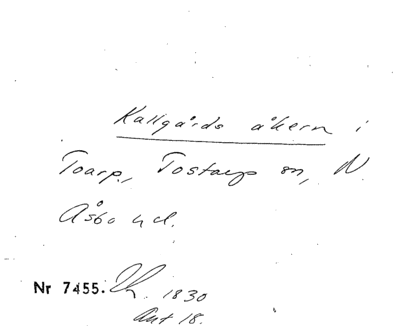 Kallgårds åkern i
Toarp., Tostarp sn, N.
Åsbo hd.
Nr 7455. 1830
Akt 18.